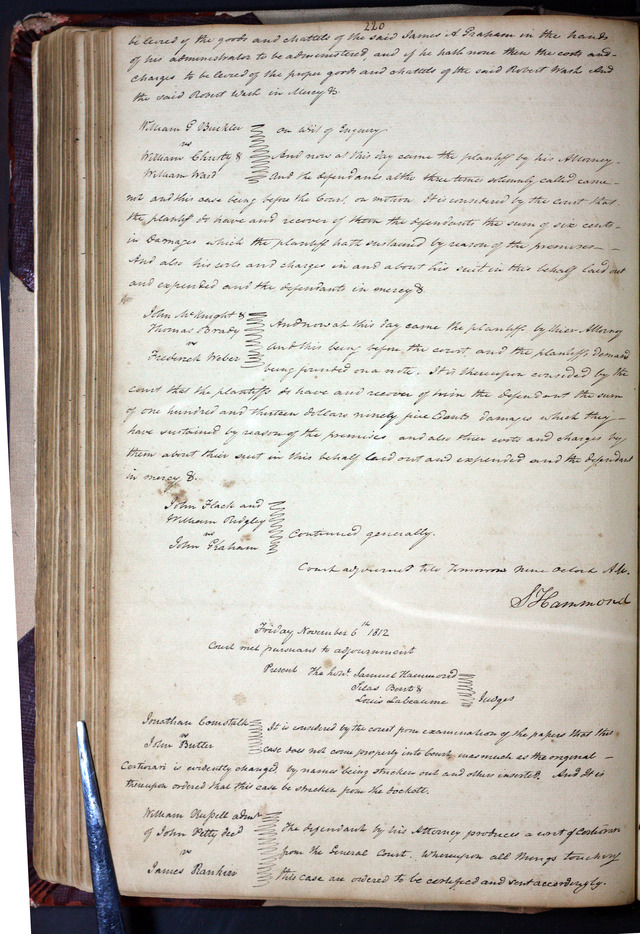 220
be levied of the goods and chattels of the said James A Graham in the hands
of his administrator to be administered, and if he hath none then the costs and
charges to be levied of the proper goods and chattels of the said Robert Wash And
the said Robert Wash in Mercy &
William G Buckler
vs
William Christy &
William Ward
On Writ of Enquiry
And now at this day came the plantiff by his Attorney
And the defendants altho three times solemnly called came
not and this case being before the Court, on motion. It is considered by the court that
the plantiff do have and recover of them the defendants the sum of six cents
in Damages which the plantiff hath sustained by reason of the premises
And also his costs and charges in and about his suit in this behalf laid out
and expended and the defendants in mercy &
John McKnight &
Thomas Brady
vs
Frederick Weber
And now at this day came the plantiffs by thier Attorney
and this being before the court, and the plantiffs demand
being founded on a note. It is thereupon considered by the
court that the plantiffs do have and recover of him the defendant the sum
of one hundred and thirteen dollars ninety five Cents damages which they
have sustained by reason of the premises and also thier costs and charges by
them about thier suit in this behalf laid out and expended and the defendant
in mercy &.
John Flack and
William Ridgley
vs
John Graham
Continued generally.
Court adjourned till tomorrow nine Oclock AM.
S Hammond
Friday November 6th 1812
Court met pursuant to adjournment
Present The honl. Samuel Hammond
Silas Bent &
Louis Labeaume
Judges
Jonathan Comstalk
vs
John Butler
It is considered by the court upon examination of the papers that this
case does not come properly into Court inasmuch as the original
Certiorari is evidently changed, by names being stricken out and others inserted. And It is
thereupon ordered that this case be stricken from the dockett.
William Russell admr
of John Petty decd
vs
James Rankin
The defendant by his Attorney produces a writ of Certiorari
from the General Court. Whereupon all things touching
this case are ordered to be certified and sent accordingly.